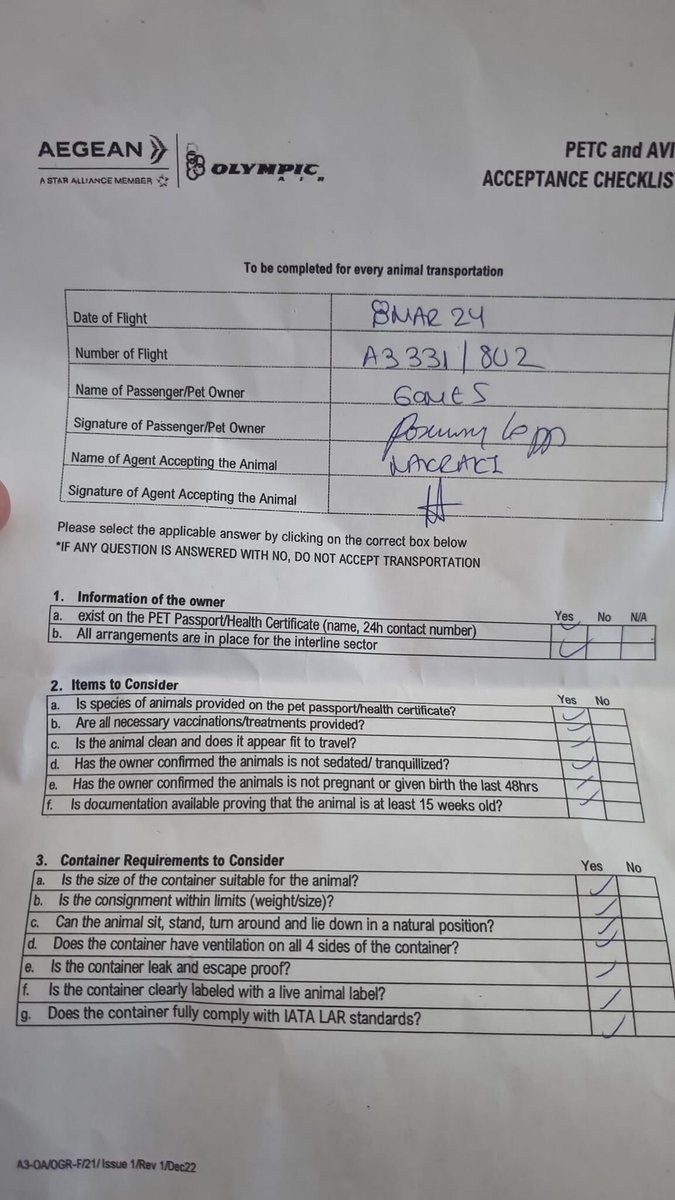 AEGEAN
A STAR ALLIANCE MEMBER
OLYMPIC
AIR
PETC and AVI
ACCEPTANCE CHECKLIS
To be completed for every animal transportation
Date of Flight 8 MAR 24
Number of Flight A3 331 / 802
Name of Passenger/Pet Owner GOMES
Signature of Passenger/Pet Owner
Name of Agent Accepting the Animal
Signature of Agent Accepting the Animal
Please select the applicable answer by clicking on the correct box below
*IF ANY QUESTION IS ANSWERED WITH NO, DO NOT ACCEPT TRANSPORTATION
1. Information of the owner Yes No N/A
a. exist on the PET Passport/Health Certificate (name, 24h contact number)
b. All arrangements are in place for the interline sector
2. Items to Consider Yes No
a. Is species of animals provided on the pet passport/health certificate?
b. Are all necessary vaccinations/treatments provided?
c. Is the animal clean and does it appear fit to travel?
d. Has the owner confirmed the animals is not sedated/ tranquillized?
e. Has the owner confirmed the animals is not pregnant or given birth the last 48hrs
f. Is documentation available proving that the animal is at least 15 weeks old?
3. Container Requirements to Consider Yes No
a. Is the size of the container suitable for the animal?
b. Is the consignment within limits (weight/size)?
c. Can the animal sit, stand, turn around and lie down in a natural position?
d. Does the container have ventilation on all 4 sides of the container?
e. Is the container leak and escape proof?
f. Is the container clearly labeled with a live animal label?
g. Does the container fully comply with IATA LAR standards?
A3-OA/OGR-F/21/ Issue 1/Rev 1/Dec22